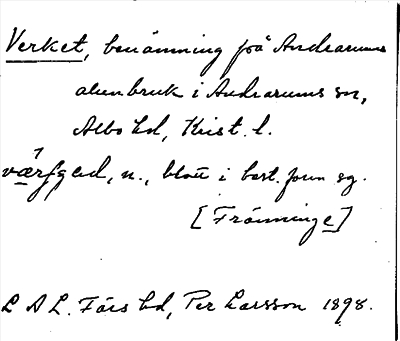 Verket, benämning på Andrarums
alunbruk i Andrarums sn,
Albo hd, Krist. l.
n., blott i best. form sg.
[Frönninge]
L A L. Färs hd, Per Larsson 1898.